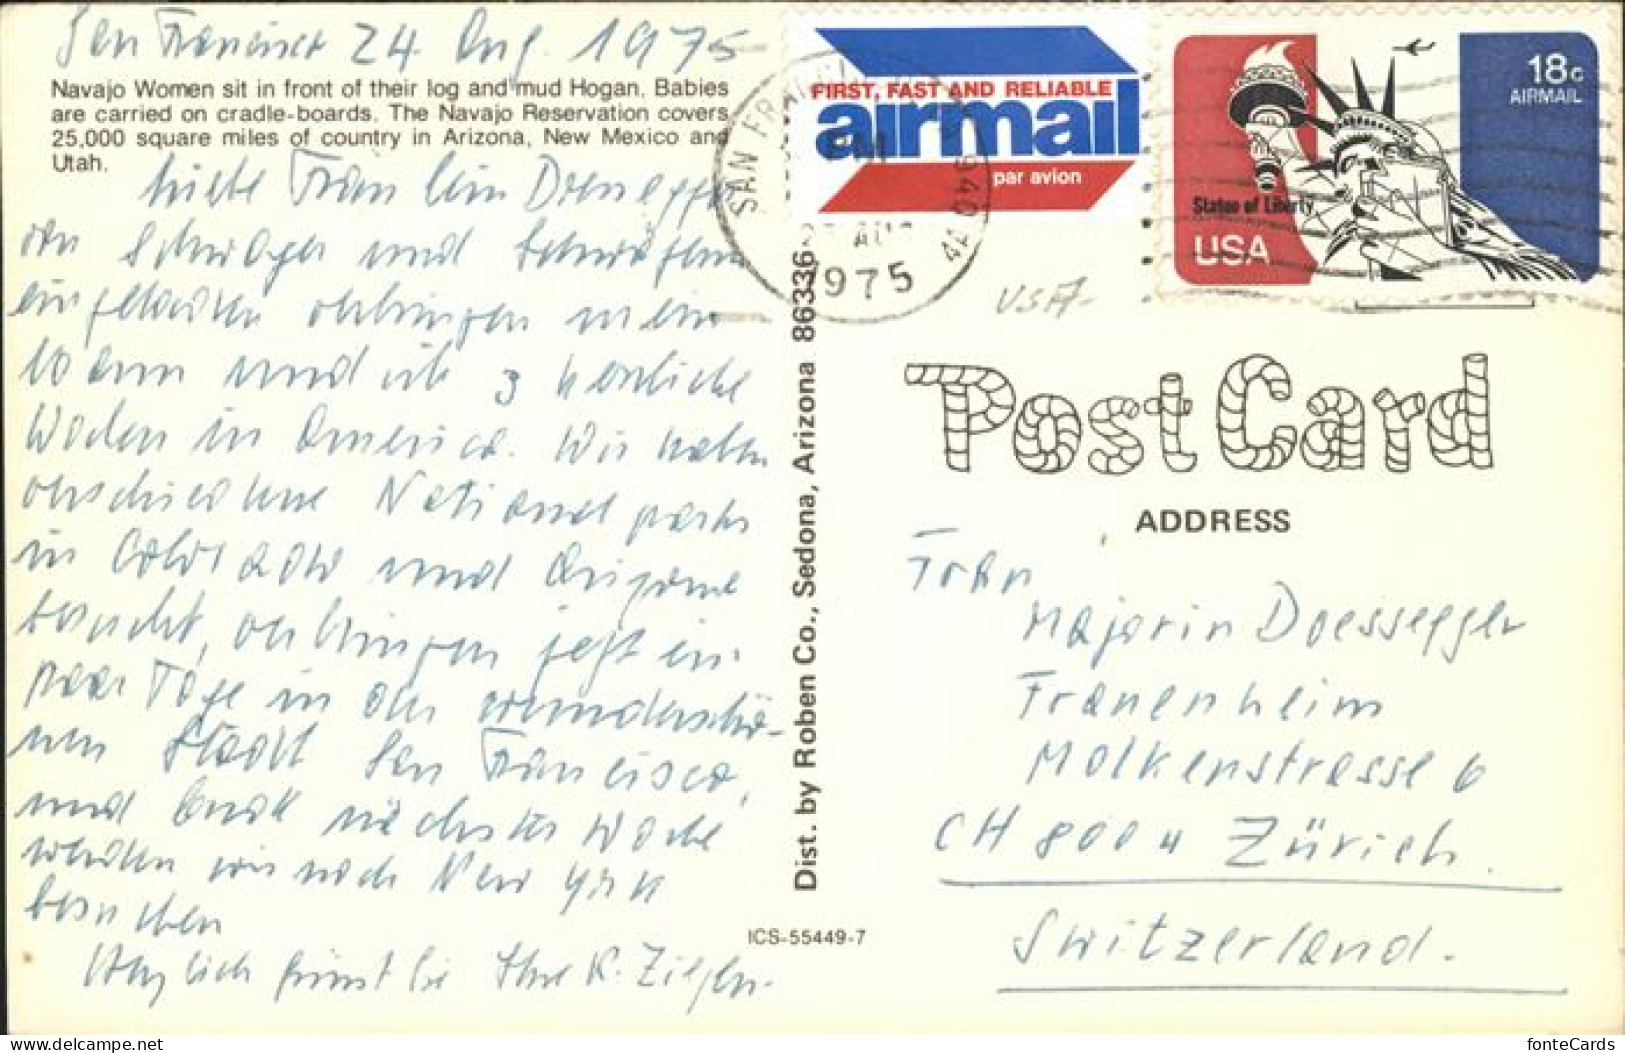 San Francisco 24 Aug. 1975
Navajo Women sit in front of their log and mud Hogan. Babies
are carried on cradle-boards. The Navajo Reservation covers
25,000 square miles of country in Arizona, New Mexico and
Utah.
Liebe Fräulein Doesegger
von Schwager und Schwägerin
eingeladen verbringen mein
Mann und ich 3 herrliche
Wochen in America. Wir haben
verschiedene National parks
in Colorado und Arizona
besucht, verbringen jetzt ein
paar Tage in der wunderschö-
nen Stadt San Francisco,
und Ende nächster Woche
werden wir noch New York
besuchen
Herzlich grüsst Sie Ihre K. Ziegler.
ICS-55449-7
Dist. by Roben Co., Sedona, Arizona 86336
FIRST, FAST AND RELIABLE
airmail
par avion
SAN FRANCISCO
PM
1975
18c
AIRMAIL
Statue of Liberty
USA
USA
Post Card
ADDRESS
Frau
Majorin Doessegger
Frauenheim
Molkenstrasse 6
CH 8004 Zürich.
Switzerland.
fonteCards